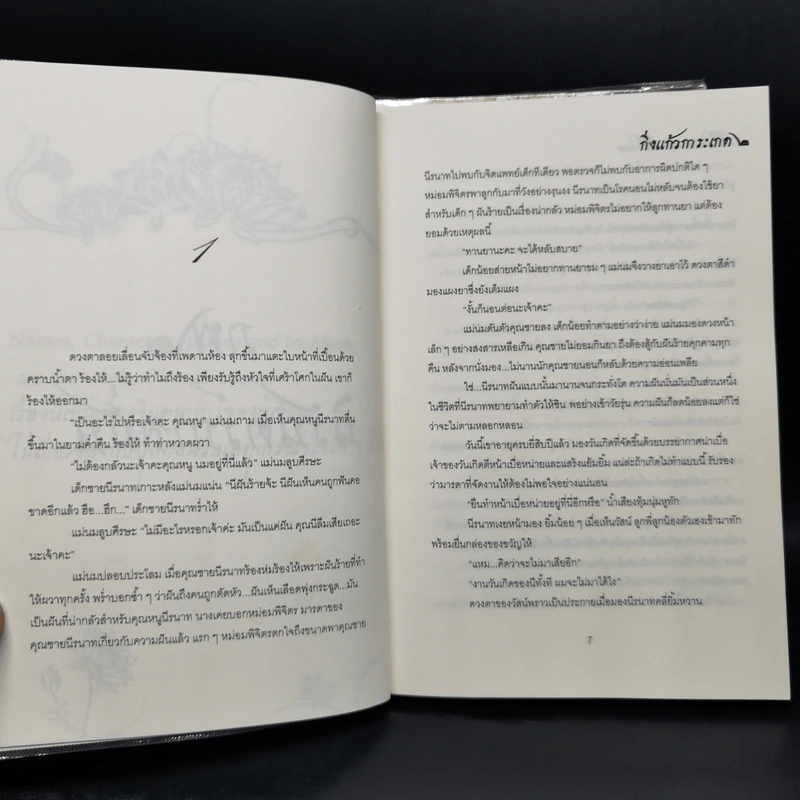 1
ดวงตาลอยเลื่อนจับจ้องที่เพดานห้อง ลุกขึ้นมาแตะใบหน้าที่เปื้อนด้วย
คราบน้ำตา ร้องไห้...ไม่รู้ว่าทำไมถึงร้อง เพียงรับรู้ถึงหัวใจที่เศร้าโศกในฝัน เขาก็
ร้องไห้ออกมา
"เป็นอะไรไปหรือเจ้าคะ คุณหนู" แม่นมถาม เมื่อเห็นคุณหนูนีรนาทตื่น
ขึ้นมาในยามค่ำคืน ร้องไห้ ทำท่าหวาดผวา
"ไม่ต้องกลัวนะเจ้าคะคุณหนู นมอยู่ที่นี่แล้ว" แม่นมลูบศีรษะ
เด็กชายนีรนาทเกาะหลังแม่นมแน่น "นีฝันร้ายจ้ะ นีฝันเห็นคนถูกฟันคอ
ขาดอีกแล้ว ฮือ...ฮึก..." เด็กชายนีรนาทร่ำไห้
แม่นมลูบศีรษะ "ไม่มีอะไรหรอกเจ้าค่ะ มันเป็นแค่ฝัน คุณนีลืมเสียเถอะ
นะเจ้าคะ"
แม่นมปลอบประโลม เมื่อคุณชายนีรนาทร้องห่มร้องไห้เพราะฝันร้ายที่ทำ
ให้ผวาทุกครั้ง พร่ำบอกซ้ำ ๆ ว่าฝันถึงคนถูกตัดหัว...ฝันเห็นเลือดพุ่งกระฉูด...มัน
เป็นฝันที่น่ากลัวสำหรับคุณหนูนีรนาท นางเคยบอกหม่อมพิจิตร มารดาของ
คุณชายนีรนาทเกี่ยวกับความฝันแล้ว แรก ๆ หม่อมพิจิตรตกใจถึงขนาดพาคุณชาย
กิ่งแก้วการะเกด ๒
นีรนาทไปพบกับจิตแพทย์เด็กทีเดียว พอตรวจก็ไม่พบกับอาการผิดปกติใด ๆ
หม่อมพิจิตรพาลูกกับมาที่วังอย่างงุนงง นีรนาทเป็นโรคนอนไม่หลับจนต้องใช้ยา
สำหรับเด็ก ๆ ฝันร้ายเป็นเรื่องน่ากลัว หม่อมพิจิตรไม่อยากให้ลูกทานยา แต่ต้อง
ยอมด้วยเหตุผลนี้
"ทานยานะคะ จะได้หลับสบาย"
เด็กน้อยส่ายหน้าไม่อยากทานยาขม ๆ แม่นมจึงวางยาเอาไว้ ดวงตาสีดำ
มองแผงยาซึ่งยังเต็มแผง
"งั้นก็นอนต่อนะเจ้าคะ"
แม่นมดันตัวคุณชายลง เด็กน้อยทำตามอย่างว่าง่าย แม่นมมองดวงหน้า
เล็ก ๆ อย่างสงสารเหลือเกิน คุณชายไม่ยอมกินยา ถึงต้องสู้กับฝันร้ายคุกคามทุก
คืน หลังจากนั่งมอง...ไม่นานนักคุณชายนอนก็หลับด้วยความอ่อนเพลีย
ใช่...นีรนาทฝันแบบนั้นมานานจนกระทั่งโต ความฝันนั่นมันเป็นส่วนหนึ่ง
ในชีวิตที่นีรนาทพยายามทำตัวให้ชิน พอย่างเข้าวัยรุ่น ความฝันก็ลดน้อยลงแต่ก็ใช่
ว่าจะไม่ตามหลอกหลอน
วันนี้เขาอายุครบยี่สิบปีแล้ว มองวันเกิดที่จัดขึ้นด้วยบรรยากาศน่าเบื่อ
เจ้าของวันเกิดตีหน้าเบื่อหน่ายและแสร้งแย้มยิ้ม แน่ล่ะถ้าเกิดไม่ทำแบบนี้ รับรอง
ว่ามารดาที่จัดงานให้ต้องไม่พอใจอย่างแน่นอน
"ยืนทำหน้าเบื่อหน่ายอยู่ที่นี่อีกหรือ" น้ำเสียงทุ้มนุ่มหูทัก
นีรนาทเงยหน้ามอง ยิ้มน้อย ๆ เมื่อเห็นวัสน์ ลูกพี่ลูกน้องตัวเองเข้ามาทัก
พร้อมยื่นกล่องของขวัญให้
"แหม...คิดว่าจะไม่มาเสียอีก"
"งานวันเกิดของนีทั้งที ผมจะไม่มาได้ไง"
ดวงตาของวัสน์พราวเป็นประกายเมื่อมองนีรนาทคลี่ยิ้มหวาน
7